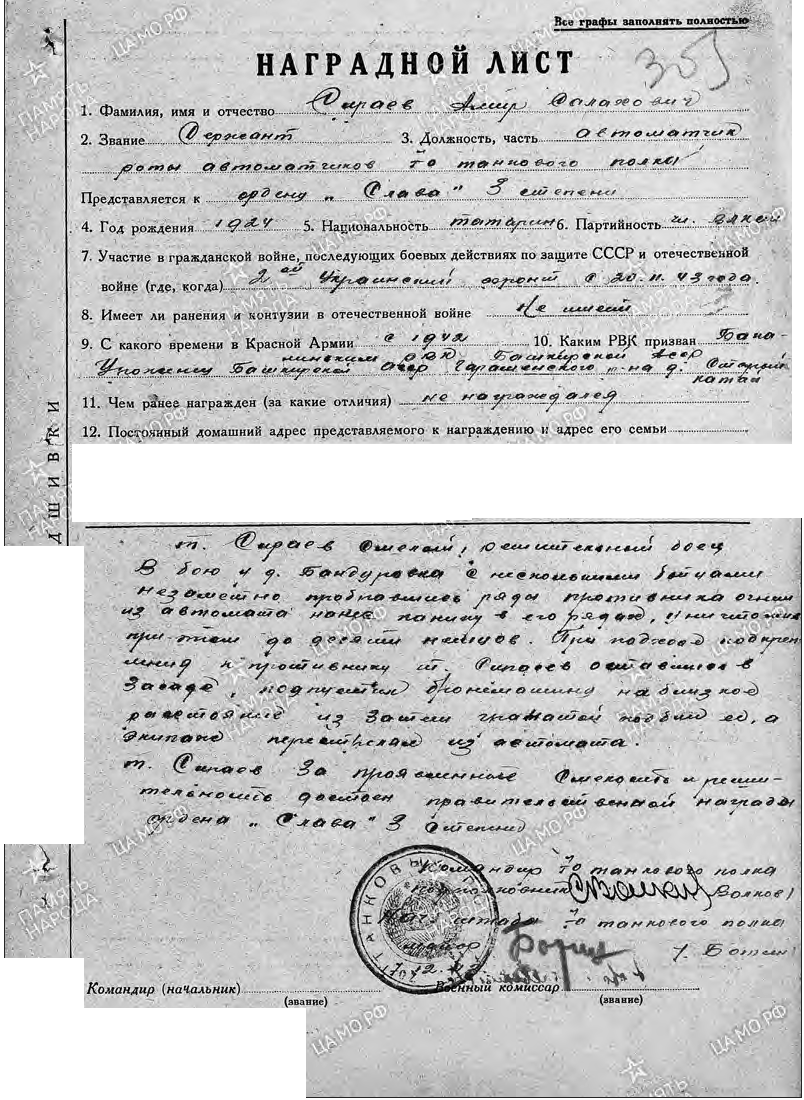 Все графы заполнять полностью
НАГРАДНОЙ ЛИСТ
355
1. Фамилия, имя и отчество Сираев Амир Салахович
2. Звание Сержант 3. Должность, часть автоматчик
роты автоматчиков танкового полка
Представляется к ордену „Слава" 3 степени
4. Год рождения 1924 5. Национальность татарин 6. Партийность чл. ВЛКСМ
7. Участие в гражданской войне, последующих боевых действиях по защите СССР и отечественной
войне (где, когда) 2ой Украинский фронт с 20.11.43 года.
8. Имеет ли ранения и контузии в отечественной войне Не имеет
9. С какого времени в Красной Армии с 1942 10. Каким РВК призван
РВК Башкирской АССР
Башкирской АССР р-на д. Старый
Катай
11. Чем ранее награжден (за какие отличия) не награждался
12. Постоянный домашний адрес представляемого к награждению и адрес его семьи
ДШИВКИ
т. Сираев смелый, решительный боец
В бою у д. Бандуровка с несколькими бойцами
незаметно пробравшись ряды противника огнем
из автомата нанес панику в его рядах, уничтожив
при этом до десяти немцев. При подходе подкреп-
ления к противнику т. Сираев оставшись в
засаде, подпустил бронемашину на близкое
расстояние из засады гранатой подбил её, а
экипаж перестрелял из автомата.
т. Сираев за проявленные смелость и реши-
тельность достоен правительственной награды
ордена „Слава" 3 степени
Командир танкового полка
подполковник Волков
Нач. штаба танкового полка
майор
Командир (начальник) Военный комиссар
(звание) (звание)
ПАМЯТЬ НАРОДА
ЦАМО.РФ